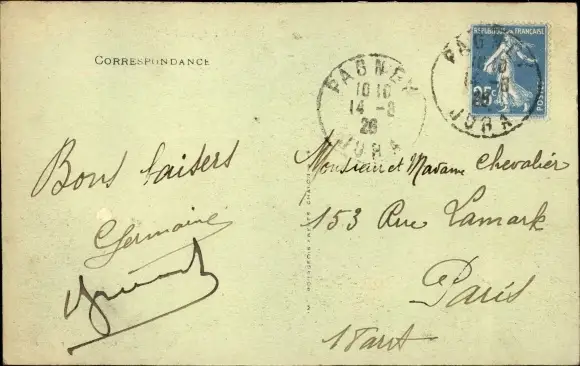 CORRESPONDANCE
RÉPUBLIQUE FRANÇAISE
25c
POSTES
PAGNEY
10 10
14 - 8
26
JURA
PAGNEY
10 10
14 - 8
26
JURA
Bons baisers
Germaine
Monsieur et Madame Chevalier
153 Rue Lamark
Paris